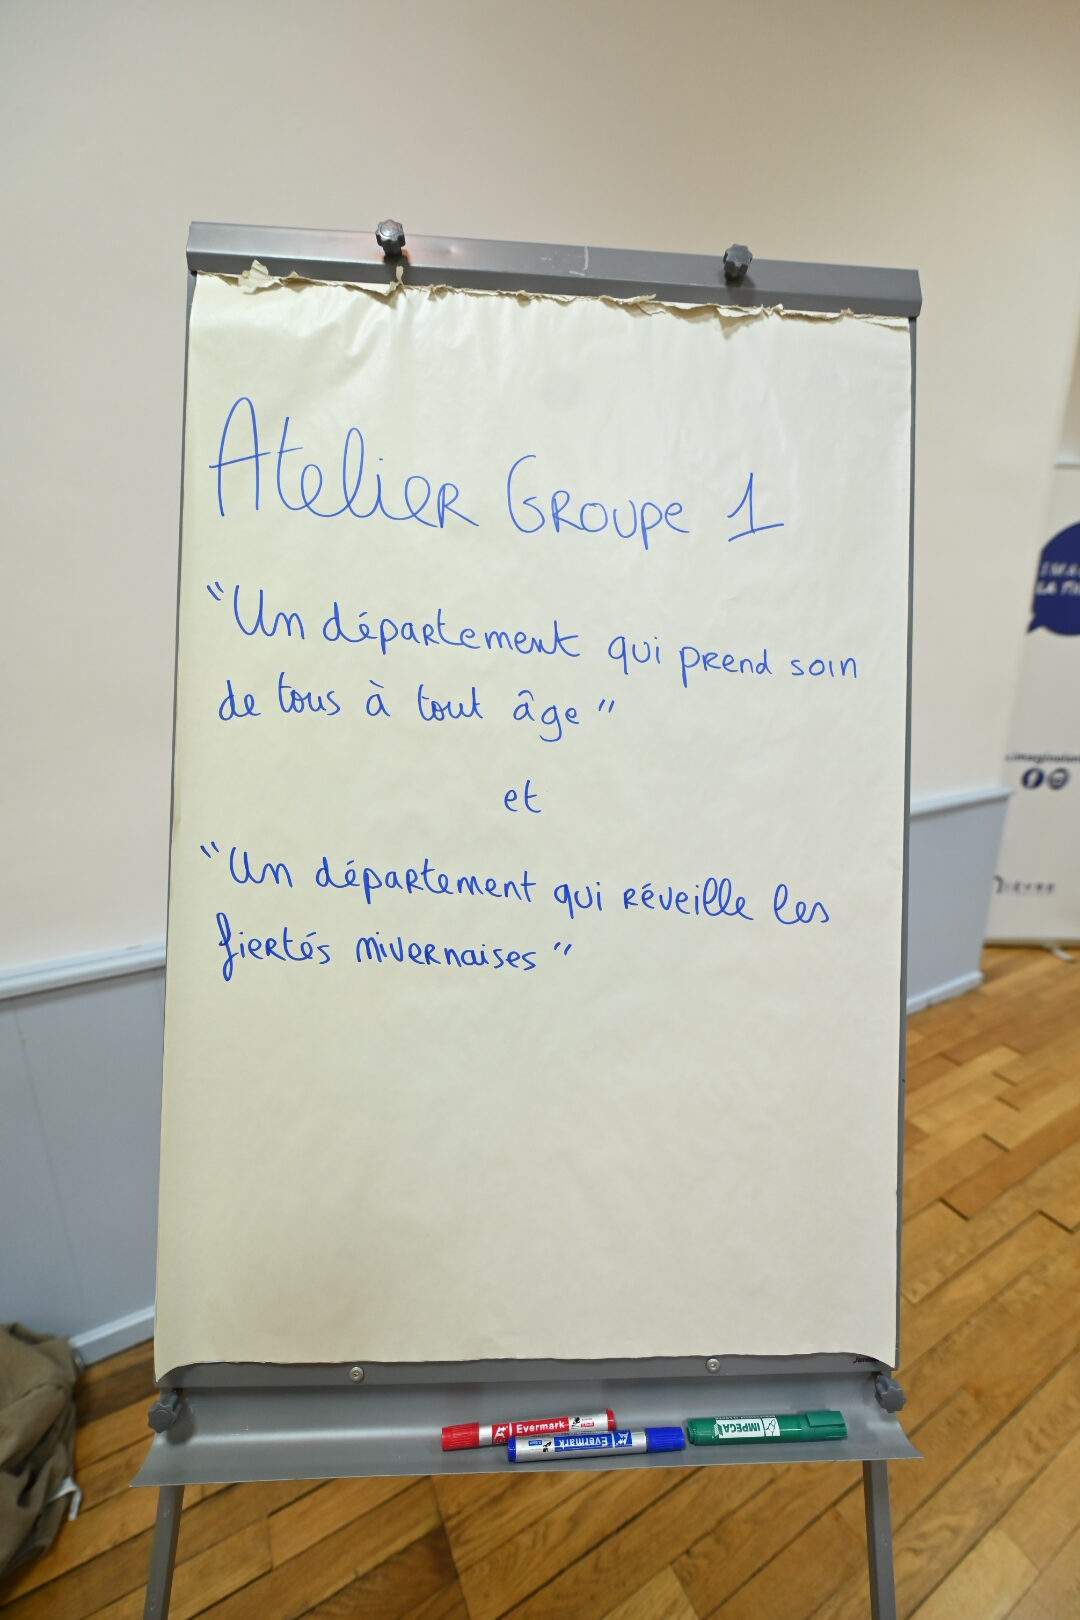 Atelier Groupe 1
"Un département qui prend soin
de tous à tout âge"
et
"Un département qui réveille les
fiertés nivernaises"
Evermark
Evermark
IMPEGA